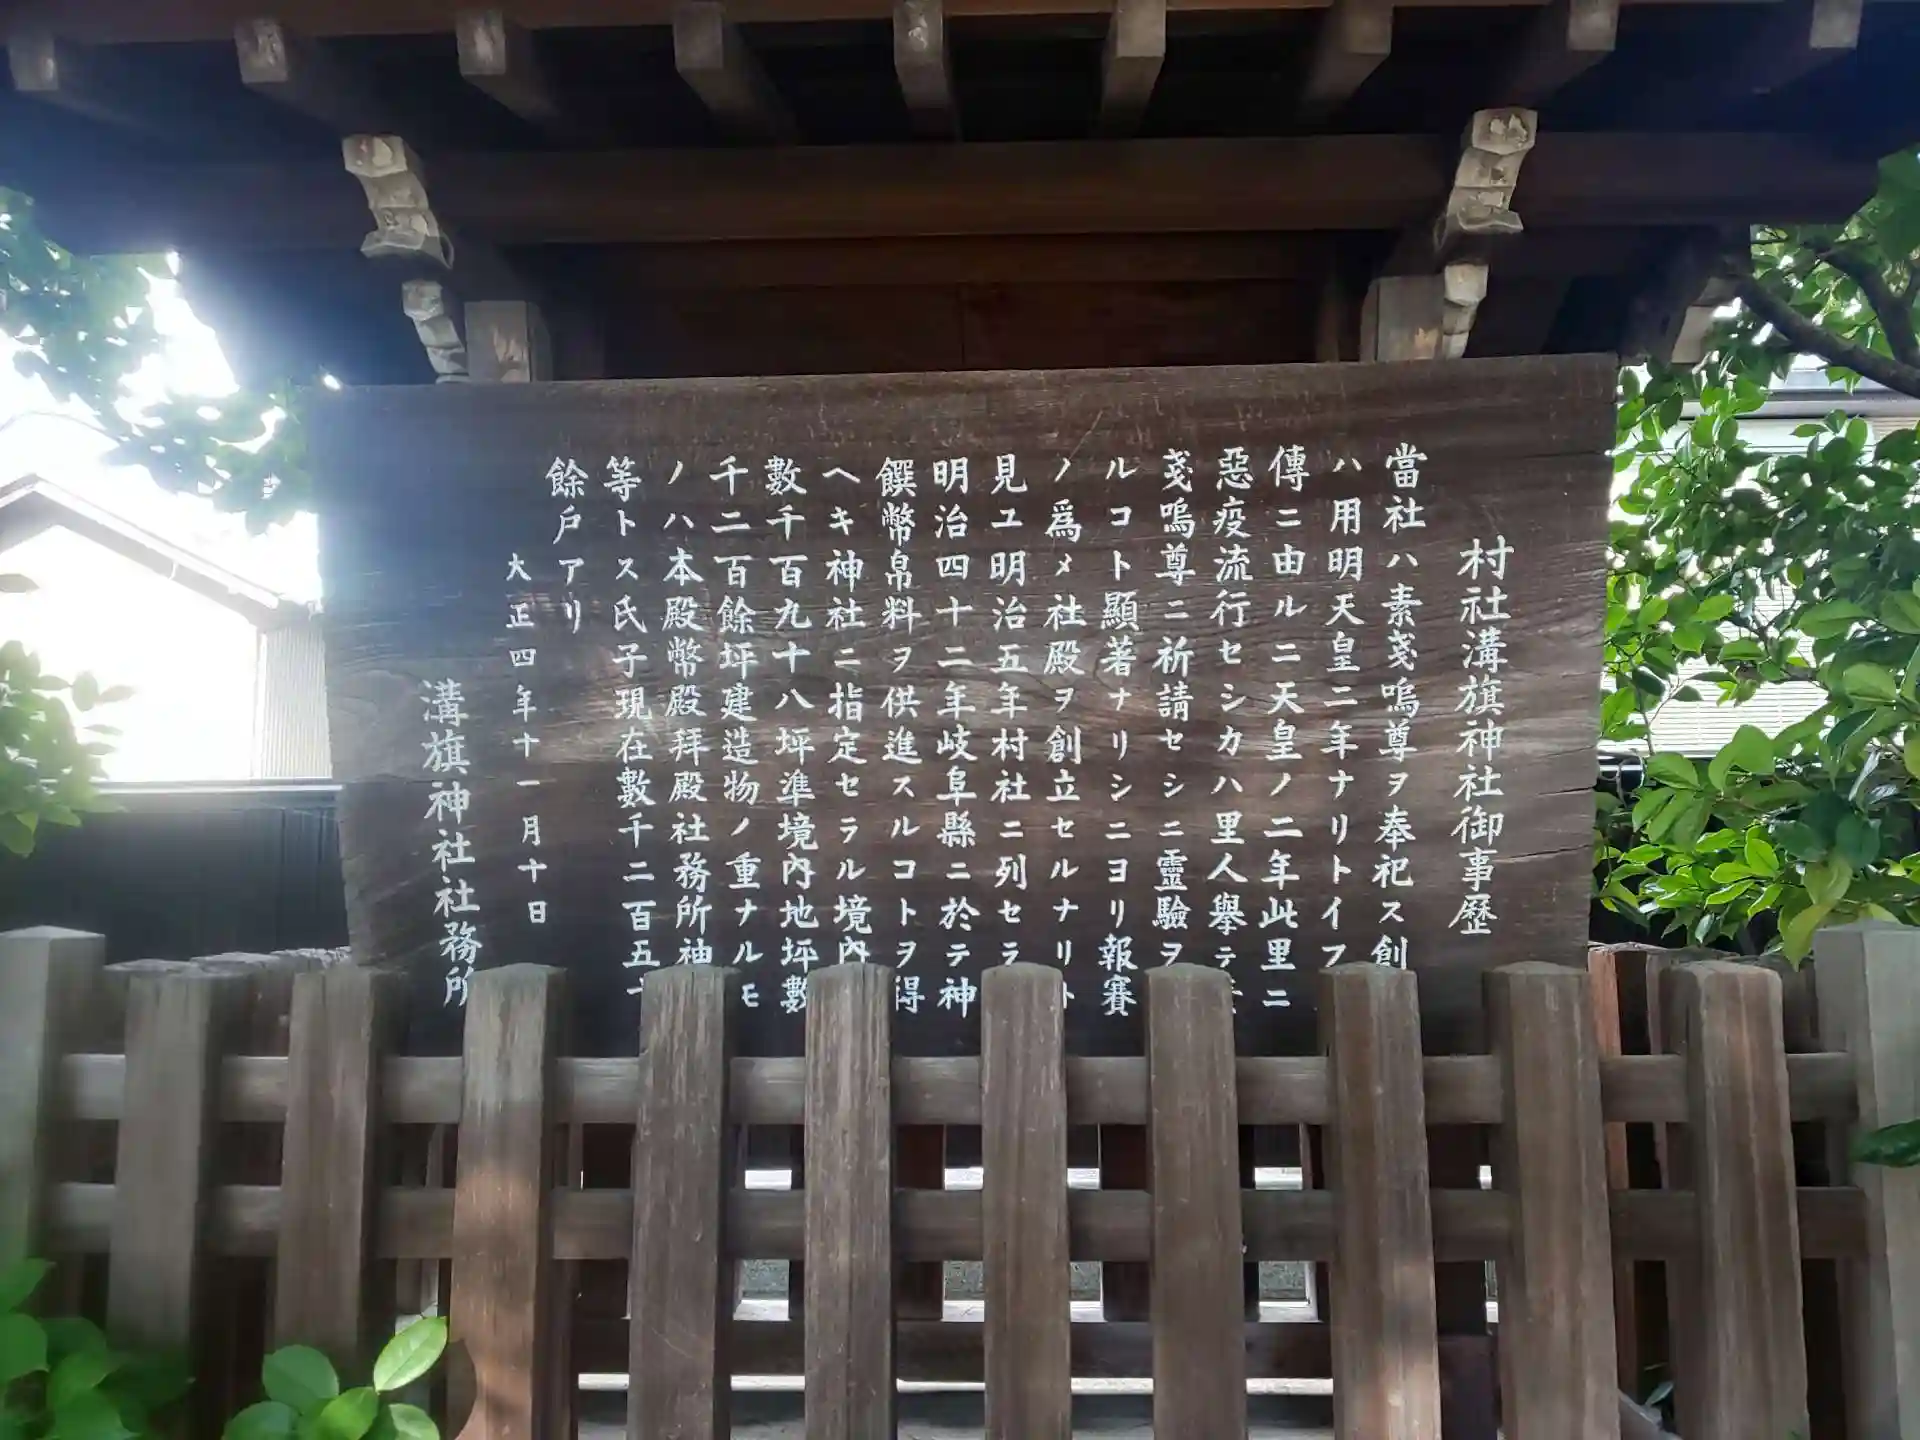 村社溝旗神社御事歴
當社ハ素戔嗚尊ヲ奉祀ス創
ハ用明天皇二年ナリトイフ
傳ニ由ル二天皇ノ二年此里ニ
惡疫流行セシカハ里人擧テ
戔嗚尊ニ祈請セシニ靈驗ヲ
ルコト顯著ナリシニヨリ報賽
ノ爲メ社殿ヲ創立セルナリト
見ユ明治五年村社ニ列セラ
明治四十二年岐阜縣ニ於テ神
饌幣帛料ヲ供進スルコトヲ得
ヘキ神社ニ指定セラル境內
數千百九十八坪準境內地坪數
千二百餘坪建造物ノ重ナルモ
ノハ本殿幣殿拜殿社務所神
等トス氏子現在數千二百五十
餘戶アリ
大正四年十一月十日
溝旗神社社務所